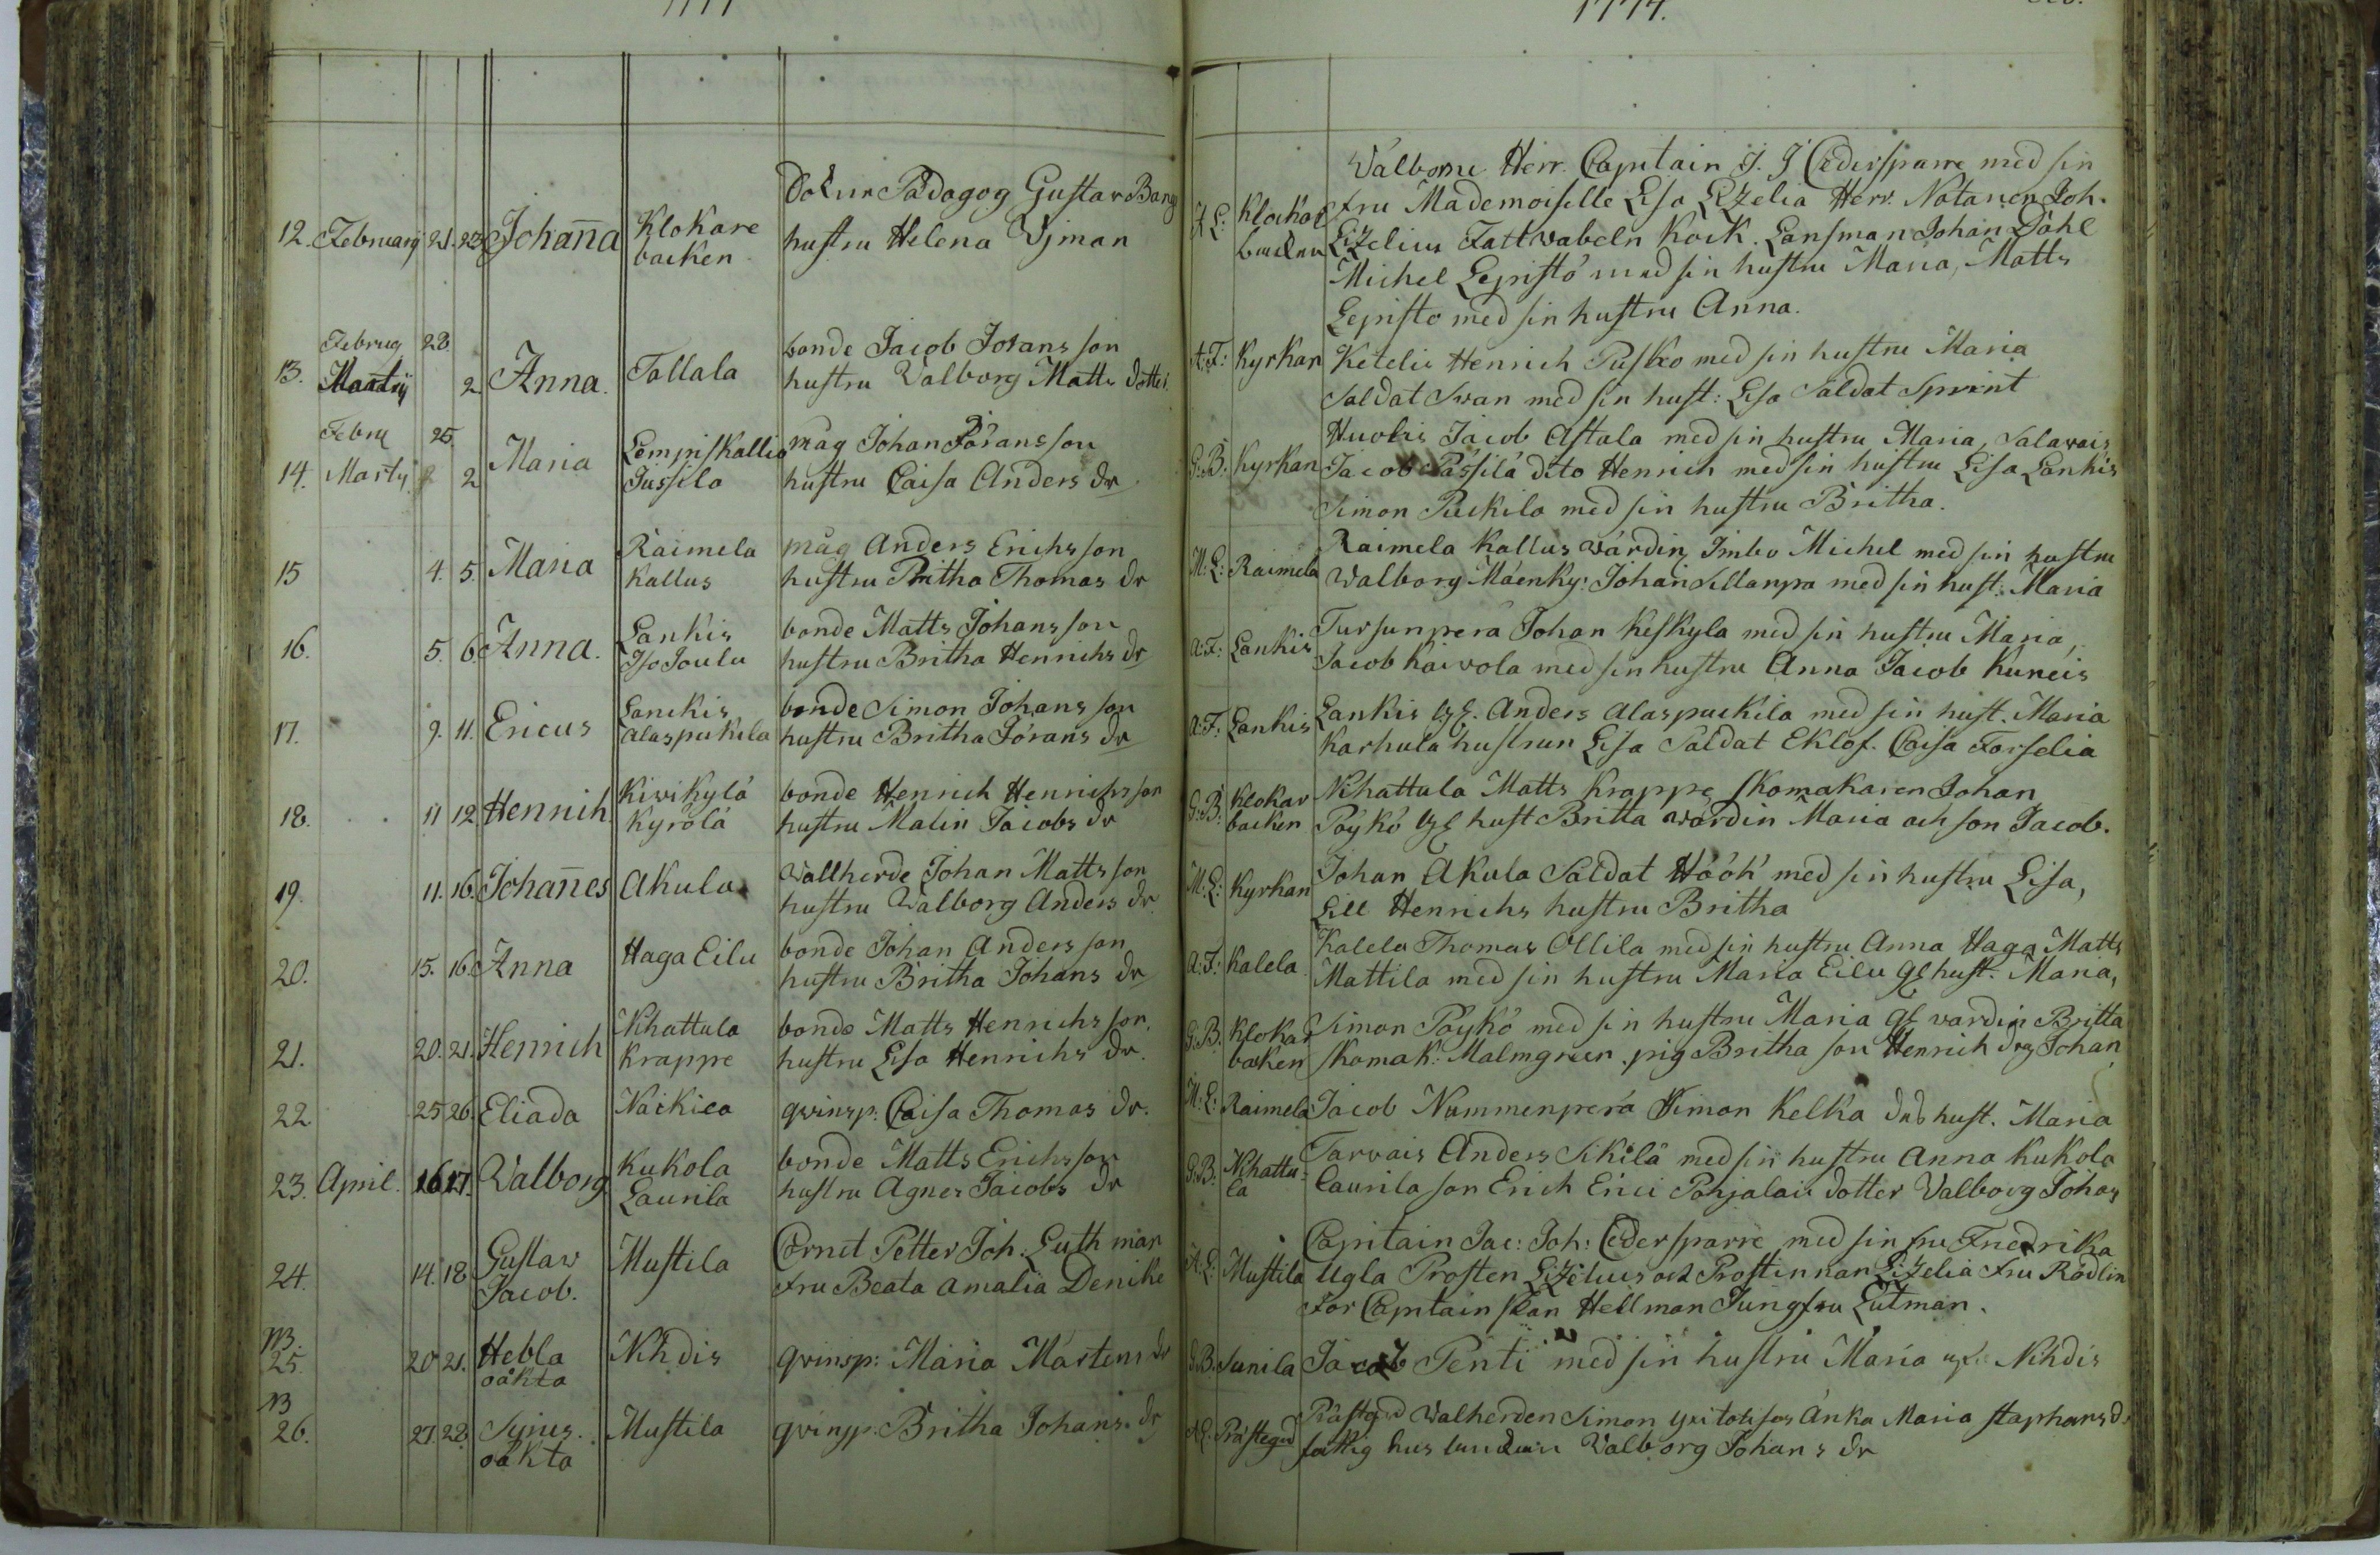 1774.
12. February 21. 23. Johanna Klokare backen
Gustav Bang
hustru Helena Wjman
Välborne Herr. Capitain J. J Cedersparre med sin
fru Mademoiselle Lisa Lizelia Herr. Notarien Joh.
Klockar Lizelius Kock. Länsman Johan Dahl
Michel Lepistö med sin hustru Maria, Matts
Lepisto med sin hustru Anna.
13. Februg 28 Martij 2. Anna. Tollala
bonde Jacob Johans son
hustru Valborg Matts dotter.
A:F: Kyrkan Ketelis Henrich Pusko med sin hustru Maria
Saldat Svan med sin hust: Lisa Saldat Sprint
14. Febru 25. Martij 2 Maria Lempiskallio Jussila
måg Johan Jörans son
hustru Caisa Anders dr
Huolis Jacob Astala med sin hustru Maria, Salavais
G:B: Kyrkan Jacob Pässilä dito Henrich med sin hustru Lisa Lankis
Simon Puckila med sin hustru Britha.
15 4. 5. Maria Raimela Kallus
måg Anders Erichs son
hustru Britha Thomas dr
Raimela Kallus värdin Imbo Michel med sin hustru
M:L: Raimela Walborg Mäenky: Johan Sillanpä med sin hust: Maria
16. 5. 6. Anna. Lankis Iso Joulu
bonde Matts Johans son
hustru Britha Henrichs dr
Tursunperä Johan Keskyla med sin hustru Maria,
A:F: Lankis Jacob Kaivola med sin hustru Anna Jacob Kuneis
17. 9. 11. Ericus Lanckis Alaspukila
bonde Simon Johans son
hustru Britha Jörans dr
A:F: Lankis Lankis Anders Alaspuckila med sin hust. Maria
Karhula hustrun Lisa Saldat Eklöf. Caisa Forselia
18. 11 12 Henrich Kivikylä Kyrölä
bonde Henrich Henrichs son
hustru Malin Jacobs dr
G:B: Klokar backen Nihattula Matts Krappe Skomakaren Johan
Pöykö hust Britta värdin Maria och son Jacob.
19. 11. 16. Johannes Akula
Wallherde Johan Matts son
hustru Walborg Anders dr
M:L: Kyrkan Johan Akula Saldat Höök med sin hustru Lisa,
Lill Henrichs hustru Britha
20. 15. 16. Anna Haga Eilu
bonde Johan Anders son
hustru Britha Johans dr
A:F: Kalela Kalela Thomas Ollila med sin hustru Anna Haga Matts
Mattila med sin hustru Maria Eilu hust. Maria,
21. 20. 21. Henrich Nihattula Krappe
bonde Matts Henrichs son.
hustru Lisa Henrichs dr.
G:B. Klokar backen Simon Pöykö med sin hustru Maria värdin Britta
Skomak: Malmgren pig Britha son Henrich drg Johan
22. 25 26. Eliada Näckico
qvinsp. Caisa Thomas dr.
M:L: Raimela Jacob Nummenperä Simon Kelka hust. Maria
23. April. 16 17. Valborg Kukola Laurila
bonde Matts Erichs son
hustru Agnes Jacobs dr
Tarvais Anders Sikilä med sin hustru Anna Kukola
G:B: Nihattu-la Laurila son Erich Erici Pohjalais dotter Valborg Johas
24. 14. 18 Gustaw Jacob. Mustila
Cornet Petter Joh: Luthman
fru Beata Amalia Denike
Capitain Jac: Joh: Cedersparre med sin fru Fredrika
A.L: Mustila Ugla Prosten Lizelius och Prostinnan Lizelia fru Rödlin
For Capitainskan Hellman Jungfru Lutman.
NB. 25. 20 21. Hebla oäkta Nihdis
qvinsp: Maria Mårtens dr
G.B. Sunila Jacob Penti med sin hustru Maria Nihdis
NB 26. 27. 28. oäkta Mustila
qvinsp: Britha Johans dr
A.L. Prästegd Prästgrd Walherden Simon änka Maria Staphans d.
fattig Walborg Johans dr